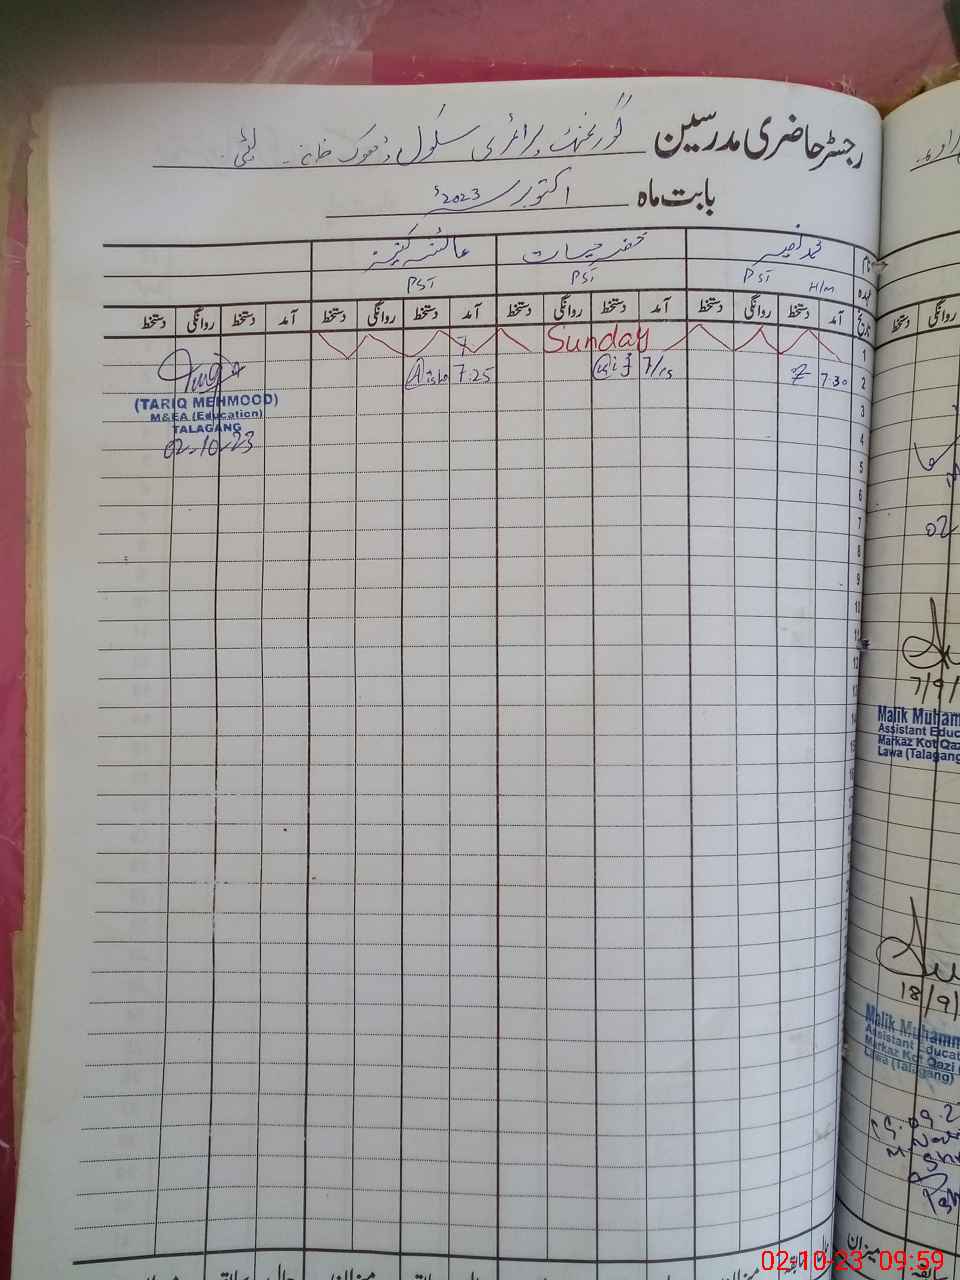 رجسٹر حاضری مدرسین گورنمنٹ پرائمری سکول ڈھوک خانہ
بابت ماہ اکتوبر 2023ء
نام محمد نصیر خضر حیات عائشہ کنیز
عہدہ H/M PST PST PST
تاریخ آمد دستخط روانگی دستخط آمد دستخط روانگی دستخط آمد دستخط روانگی دستخط آمد دستخط روانگی دستخط
1 Sunday 7
2 7.30 7/15 7.25 Aisha
(TARIQ MEHMOOD)
M&EA (Education)
TALAGANG
02-10-23
3
4
5
6
7
8
9
10
11
12
13
14
15
میزان
دستخط
روانگی
02
7/9/
Malik Muham
Assistant Educ
Markaz Kot Qaz
Lawa (Talagang
18/9/
Malik Muhamm
Assistant Educat
Markaz Kot Qazi
Lawa (Talagang)
02-10-23 09:59